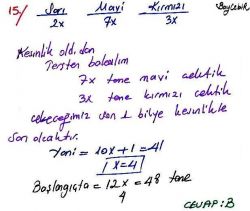 15/ Sarı Mavi Kırmızı
2x 7x 3x
Kesinlik old.dan
Tersten bakalım
7x tane mavi çektik
3x tane kırmızı çektik
çekeceğimiz son 1 bilye kesinlikle
Sarı olacaktır.
Yani = 10x+1=41
x=4
Başlangıçta = 12x = 48 tane
4
CEVAP: B